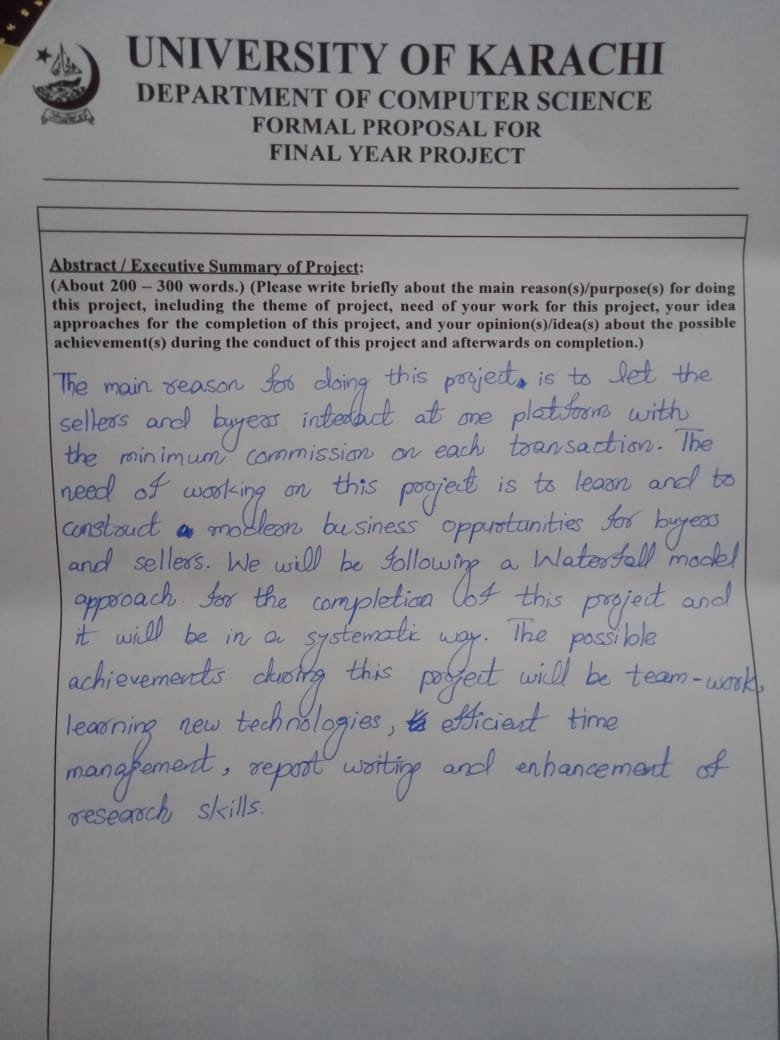 UNIVERSITY OF KARACHI
DEPARTMENT OF COMPUTER SCIENCE
FORMAL PROPOSAL FOR
FINAL YEAR PROJECT
Abstract / Executive Summary of Project:
(About 200 – 300 words.) (Please write briefly about the main reason(s)/purpose(s) for doing
this project, including the theme of project, need of your work for this project, your idea
approaches for the completion of this project, and your opinion(s)/idea(s) about the possible
achievement(s) during the conduct of this project and afterwards on completion.)
The main reason for doing this project is to let the
sellers and buyers interact at one platform with
the minimum commission on each transaction. The
need of working on this project is to learn and to
construct modern business oppurtunities for buyers
and sellers. We will be following a Waterfall model
approach for the completion of this project and
it will be in a systematic way. The possible
achievements during this project will be team-work,
learning new technologies, efficient time
management, report writing and enhancement of
research skills.